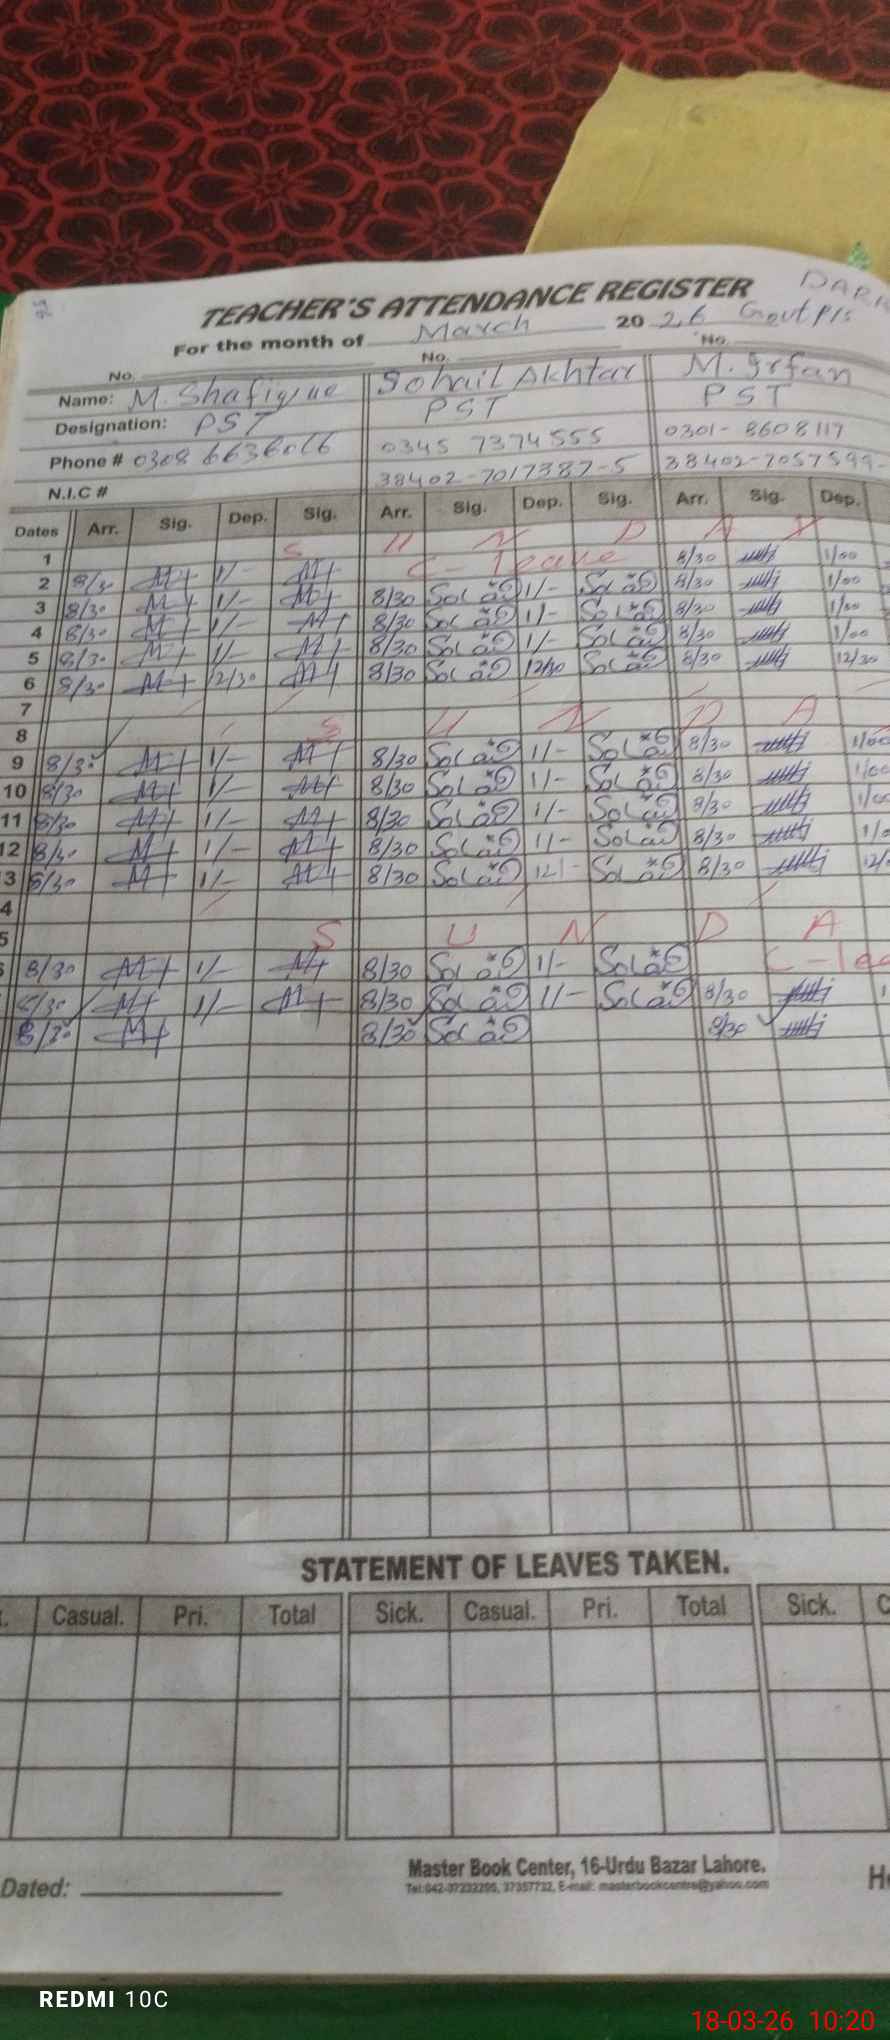 TEACHER'S ATTENDANCE REGISTER
For the month of March 20 26 Govt P/S
No. No. No.
Name: M. Shafique Sohail Akhtar M. Irfan
Designation: PST PST PST
Phone # 0308 6636066 0345 7374555 0301-8608117
N.I.C # 38402-7017387-5 38402-7057599-
Dates Arr. Sig. Dep. Sig. Arr. Sig. Dep. Sig. Arr. Sig. Dep.
1 S U N D A Y
2 8/30 1/- C-leave 8/30 1/00
3 8/30 1/- 8/30 1/- 8/30 1/00
4 8/30 1/- 8/30 1/- 8/30 1/00
5 8/30 1/- 8/30 1/- 8/30 1/00
6 8/30 12/30 8/30 12/30 8/30 12/30
7
8 S U N D A
9 8/30 1/- 8/30 1/- 8/30 1/00
10 8/30 1/- 8/30 1/- 8/30 1/00
11 8/30 1/- 8/30 1/- 8/30 1/00
12 8/30 1/- 8/30 1/- 8/30
3 8/30 1/- 8/30 12/- 8/30
4
5 S U N D A
8/30 1/- 8/30 1/- C-lea
8/30 1/- 8/30 1/- 8/30
8/30 8/30 8/30
STATEMENT OF LEAVES TAKEN.
Casual. Pri. Total Sick. Casual. Pri. Total Sick. C
Dated:
Master Book Center, 16-Urdu Bazar Lahore.
Tel:042-37232296, 37357732, E-mail: masterbookcentre@yahoo.com
REDMI 10C
18-03-26 10:20